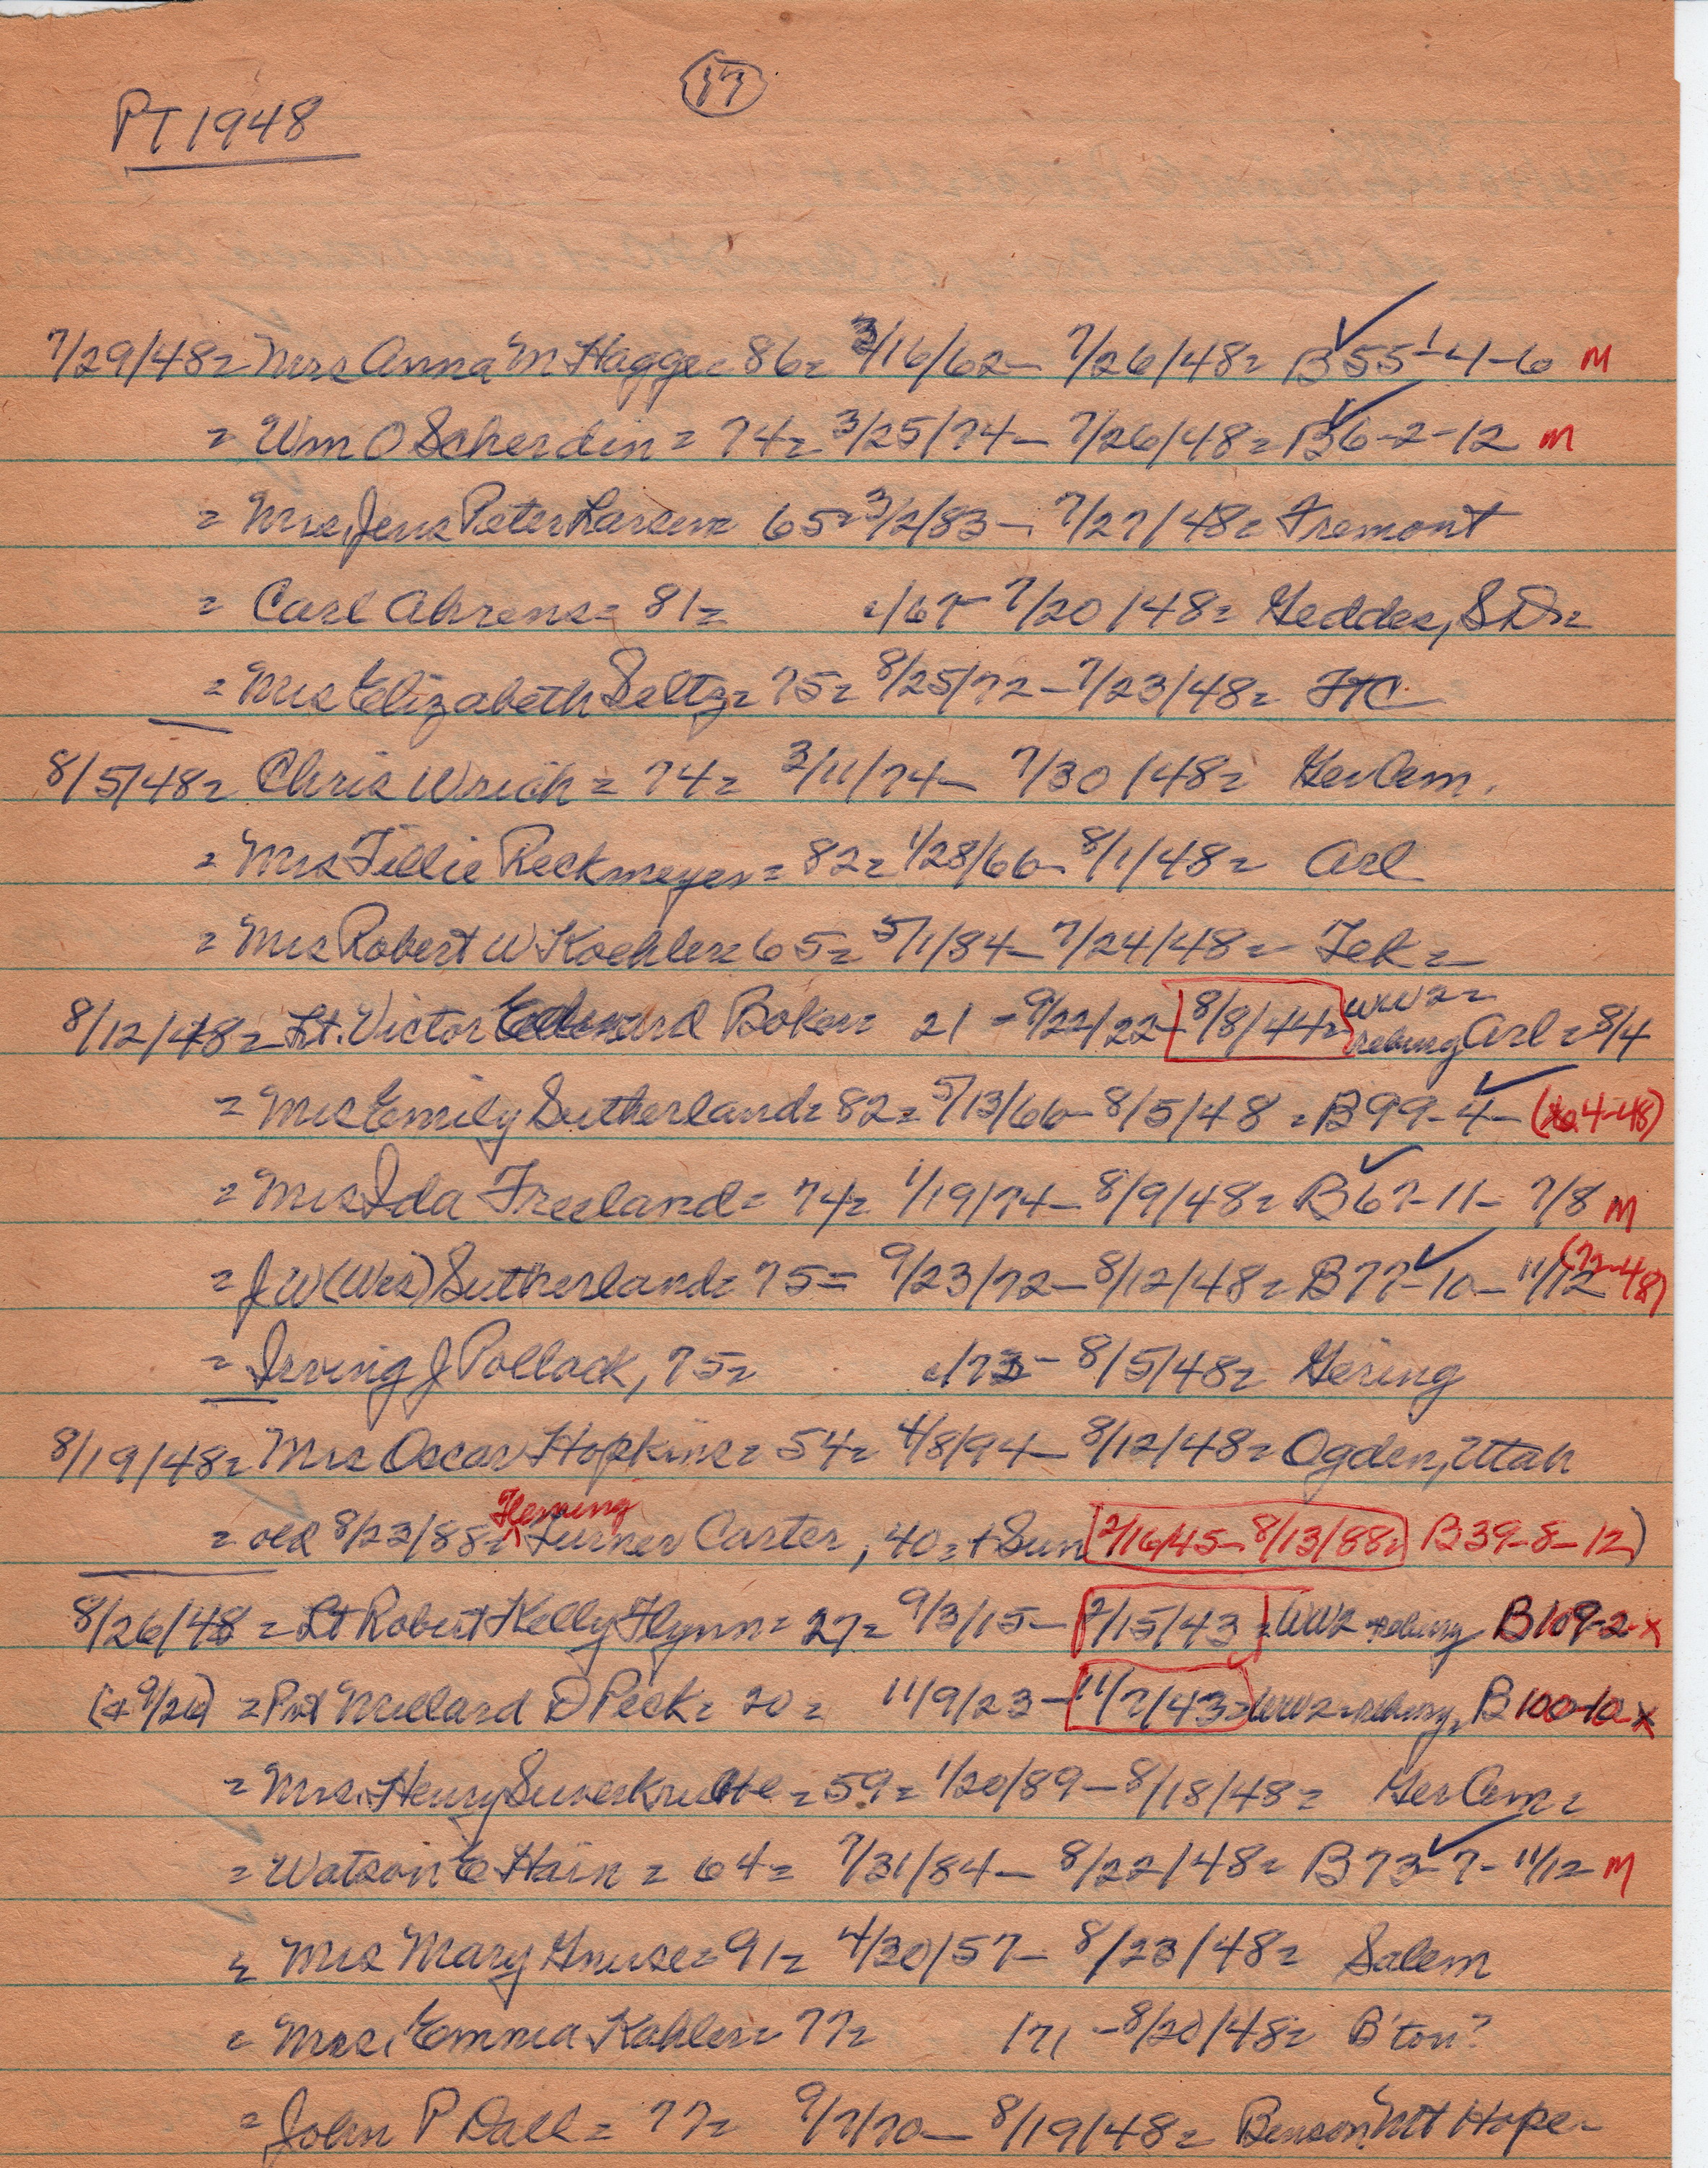 17
PT 1948
7/29/48= Mrs Anna M Hagge= 86= 3/16/62- 7/26/48= B55-4-6 M
= Wm O Scherdin= 74= 3/25/74- 7/26/48= B6-2-12 M
= Mrs, Jens Peter Larsen= 65= 3/2/83- 7/27/48= Fremont
= Carl Ahrens= 81= c/67- 7/20/48= Geddes, SD=
= Mrs Elizabeth Seltz= 75= 8/25/72- 7/23/48= FTC
8/5/48= Chris Wrich= 74= 3/11/74- 7/30/48= Ger Cem.
= Mrs Tillie Reckmeyer= 82= 1/28/66- 8/1/48= Arl
= Mrs Robert W Koehler= 65= 5/1/84- 7/24/48= Tek=
8/12/48= Lt. Victor Edward Boker= 21 = 9/22/22- 8/8/44= WW2= reburg Arl= 8/4
= Mrs Emily Sutherland= 82= 5/13/66- 8/5/48= B99-4- 4-48)
= Mrs Ida Freeland= 74= 1/19/74- 8/9/48= B67-11- 7/8 M
= J W (Wes) Sutherland= 75= 9/23/72- 8/12/48= B77-10- 11/12 (72-48)
= Irving J Pollock, 75= c/73- 8/5/48= Gering
8/19/48= Mrs Oscar Hopkins= 54= 4/8/94- 8/12/48= Ogden, Utah
= old 8/23/88= Fleming Turner Carter, 40=+ Sun 2/16/45- 8/13/88= B39-8-12)
8/26/48= Lt Robert Kelly Flynn= 27= 9/3/15- 2/15/43= WW2 reburg B109-2-x
(+ 9/26) = Pvt Millard D Peck= 20= 11/9/23- 11/7/43= WW2= reburg= B100-10-x
= Mrs. Henry Suverkrubbe= 59= 1/20/89- 8/18/48= Ger Cem=
= Watson E Hain= 64= 7/31/84- 8/22/48= B73-7- 11/12 M
= Mrs Mary Gnuse= 91= 4/30/57- 8/23/48= Salem
= Mrs. Emma Kahler= 77= /71 -8/20/48= B'ton?
= John P Dall= 77= 9/7/70- 8/19/48= Benson, Mt Hope-